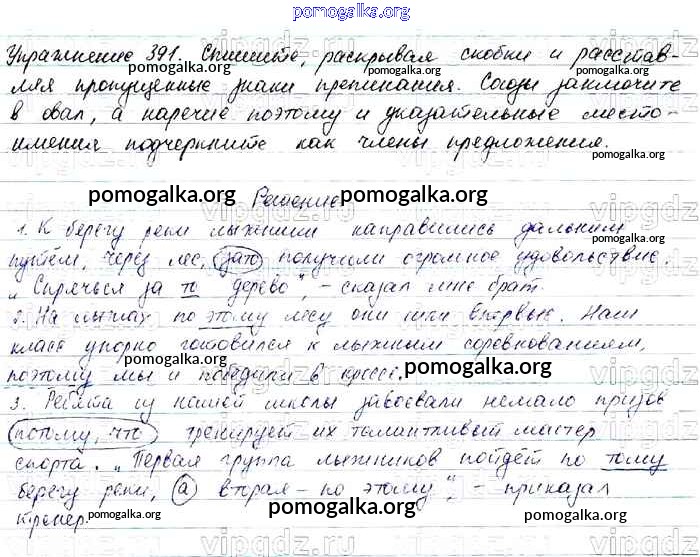 pomogalka.org
Упражнение 391. Спишите, раскрывая скобки и расстав-
ляя пропущенные знаки препинания. Союзы заключите
в овал, а наречие поэтому и указательные место-
имения подчеркните как члены предложения.
Решение
1. К берегу реки лыжники направились дальним
путём, через лес, зато получили огромное удовольствие.
„Спрячься за то дерево", – сказал мне брат.
2. На лыжах по этому лесу они шли впервые. Наш
класс упорно готовился к лыжным соревнованиям,
поэтому мы и победили в кроссе.
3. Ребята из нашей школы завоевали немало призов
потому, что тренирует их талантливый мастер
спорта. „Первая группа лыжников пойдёт по тому
берегу реки, а вторая – по этому", – приказал
тренер.